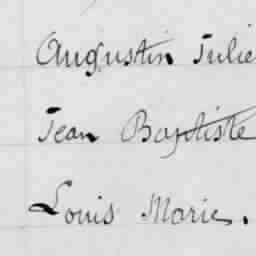 Augustin Julie
Jean Baptiste
Louis Marie.